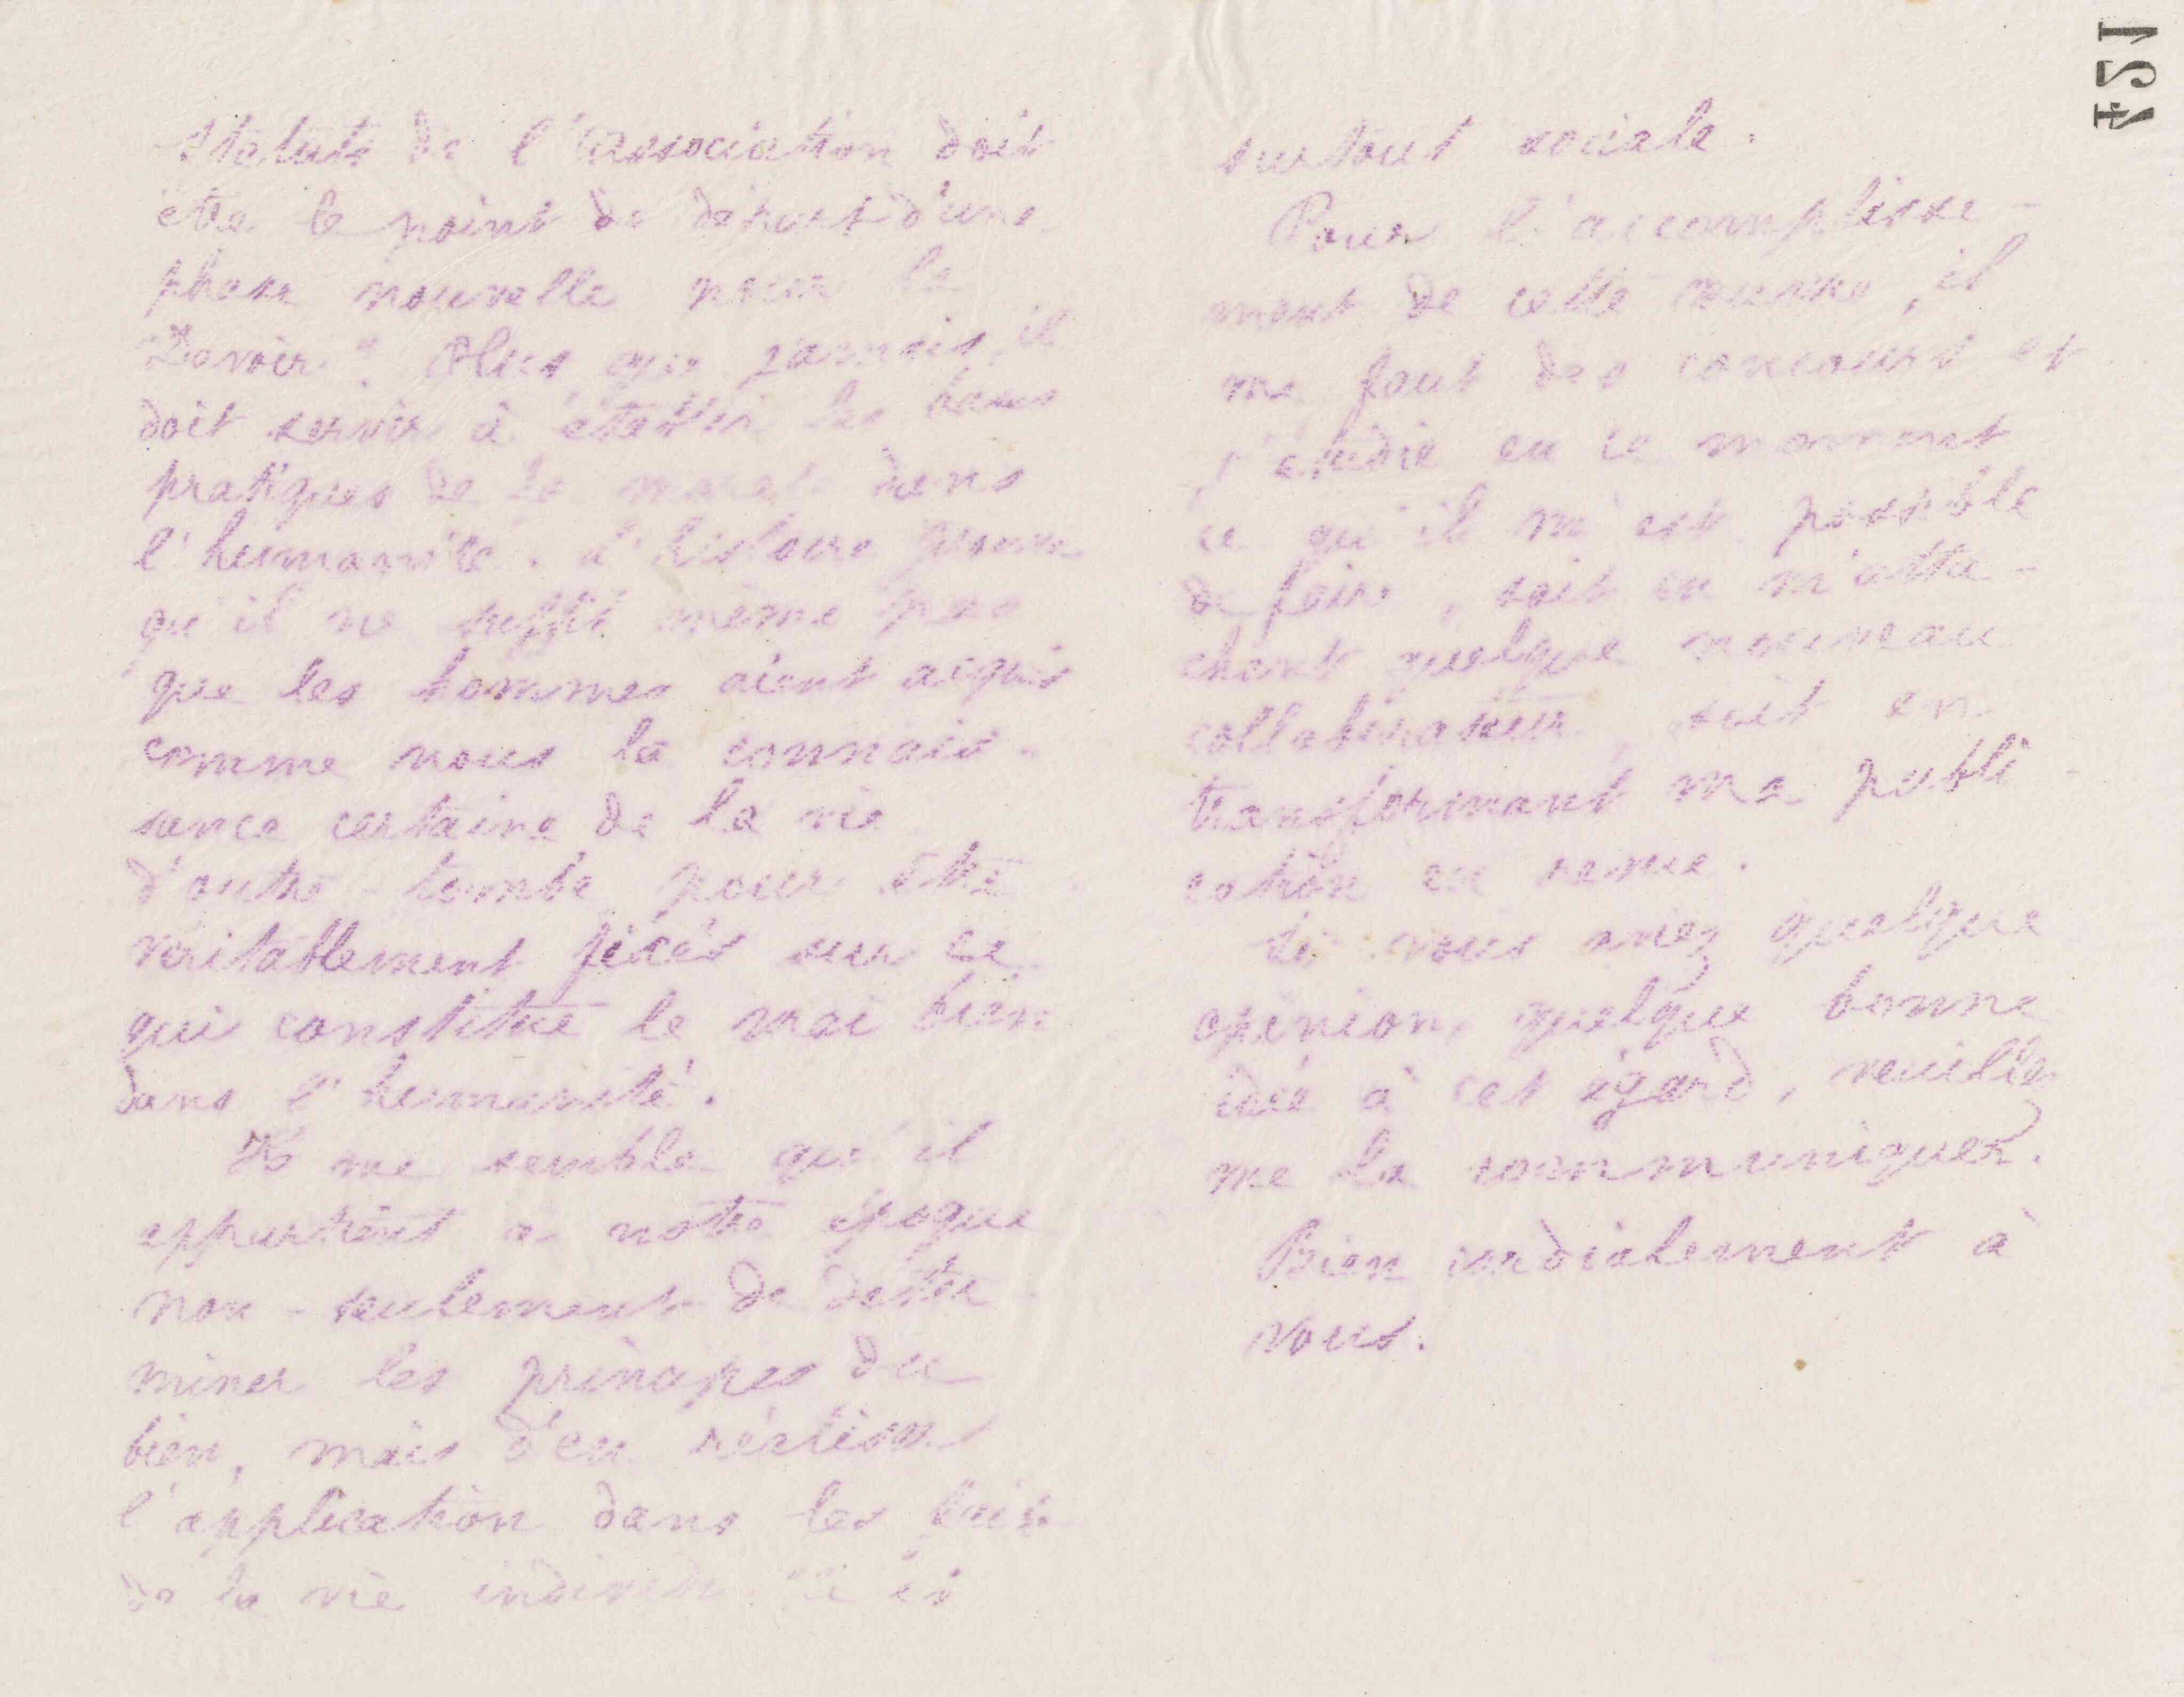 statuts de l'association doit
être le point de départ d'une
phase nouvelle pour le
"Devoir". Plus que jamais, il
doit servir à établir les bases
pratiques de la morale dans
l'humanité. L'histoire prouve
qu'il ne suffit même pas
que les hommes aient acquis
comme nous la connais-
sance certaine de la vie
d'outre-tombe pour être
véritablement fixés sur ce
qui constitue le vrai bien
dans l'humanité.
Il me semble qu'il
appartient à notre époque
non-seulement de déter-
miner les principes du
bien, mais d'en réaliser
l'application dans les faits
de la vie individuelle et
surtout sociale.
Pour l'accomplisse-
ment de cette œuvre, il
me faut des concours et
j'étudie en ce moment
ce qu'il m'est possible
de faire, soit en m'atta-
chant quelque nouveau
collaborateur, soit en
transformant ma publi-
cation en revue.
Si vous aviez quelque
opinion, quelque bonne
idée à cet égard, veuillez
me la communiquer.
Bien cordialement à
vous.
124